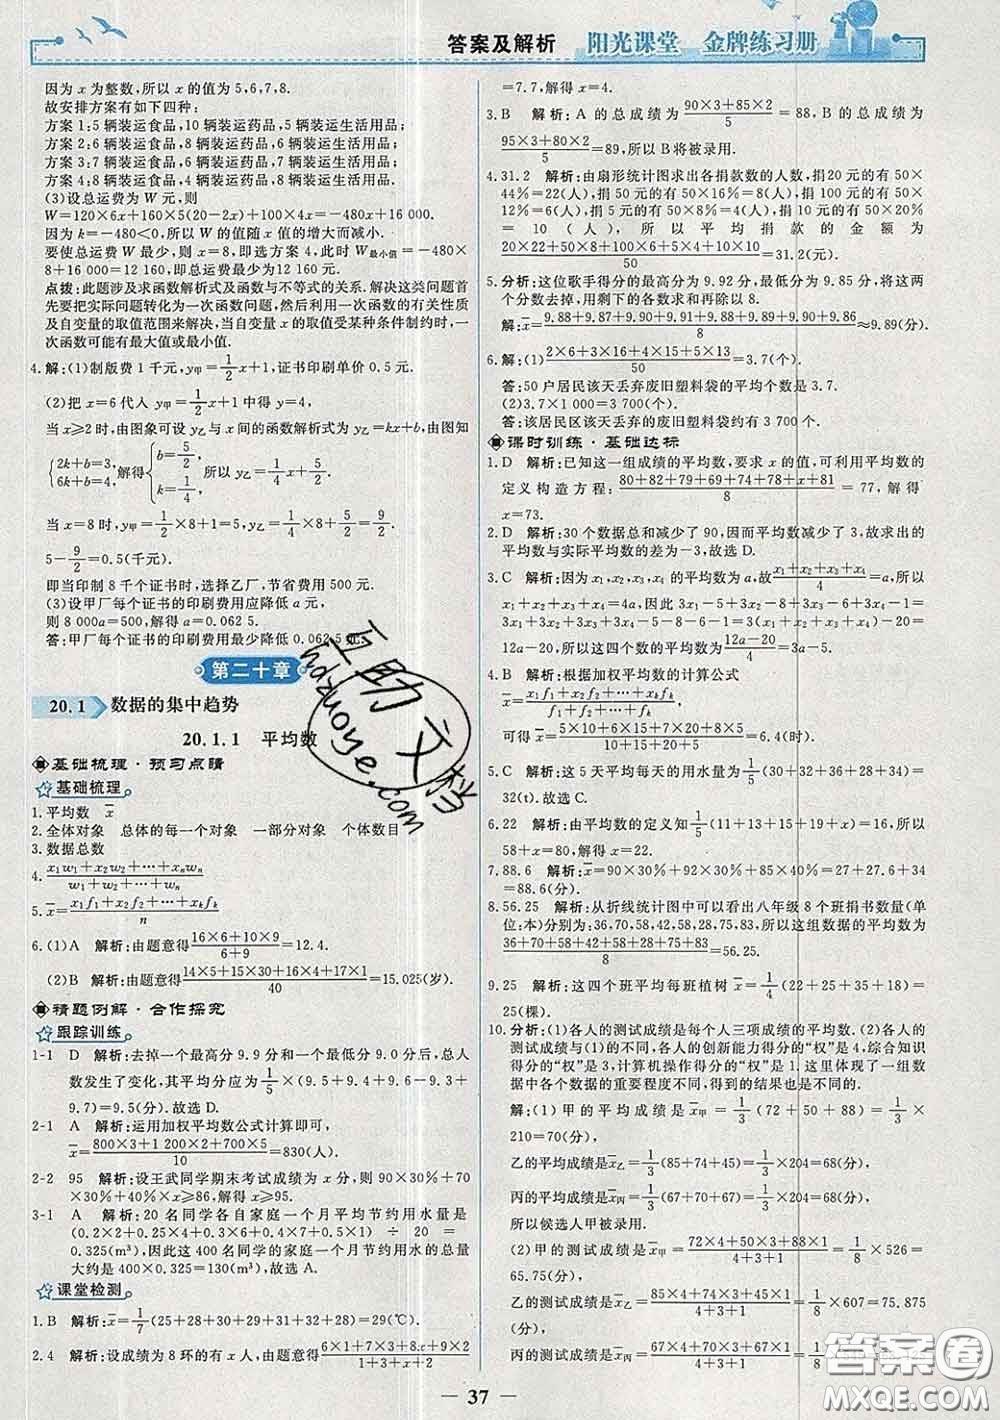 答案及解析 阳光课堂 金牌练习册
因为 x 为整数,所以 x 的值为 5,6,7,8.
故安排方案有如下四种:
方案 1:5 辆装运食品,10 辆装运药品,5 辆装运生活用品;
方案 2:6 辆装运食品,8 辆装运药品,6 辆装运生活用品;
方案 3:7 辆装运食品,6 辆装运药品,7 辆装运生活用品;
方案 4:8 辆装运食品,4 辆装运药品,8 辆装运生活用品.
(3)设总运费为 W 元,则
W=120×6x+160×5(20-2x)+100×4x=-480x+16 000.
因为 k=-480<0,所以 W 的值随 x 值的增大而减小.
要使总运费 W 最少,则 x=8,即选方案 4,此时 W最小值=-480×
8+16 000=12 160,即最少总运费为 12 160 元.
点拨:此题涉及求函数解析式及函数与不等式的关系.解决这类问题首
先要把实际问题转化为一次函数问题,然后利用一次函数的有关性质
及自变量的取值范围来解决,当自变量 x 的取值受某种条件制约时,一
次函数可能有最大值或最小值.
4.解:(1)制版费 1 千元,y甲=1/2x+1,证书印刷单价 0.5 元.
(2)把 x=6 代入 y甲=1/2x+1 中得 y=4,
当 x≥2 时,由图象可设 y乙与 x 间的函数解析式为 y乙=kx+b,由图知
{2k+b=3, 6k+b=4, 解得{b=5/2, k=1/4. 所以 y乙=1/4x+5/2.
当 x=8 时,y甲=1/2×8+1=5,y乙=1/4×8+5/2=9/2,
5-9/2=0.5(千元).
即当印制 8 千个证书时,选择乙厂,节省费用 500 元.
(3)设甲厂每个证书的印刷费用应降低 a 元,
则 8 000a=500,解得 a=0.062 5.
答:甲厂每个证书的印刷费用最少降低 0.062 5 元.
第二十章
20.1 数据的集中趋势
20.1.1 平均数
基础梳理·预习点睛
基础梳理
1.平均数 x̄
2.全体对象 总体的每一个对象 一部分对象 个体数目
3.数据总数
4.(x₁w₁+x₂w₂+⋯+xₙwₙ)/(w₁+w₂+⋯+wₙ)
5.x̄=(x₁f₁+x₂f₂+⋯+xₖfₖ)/n
6.(1)A 解析:由题意得(16×6+10×9)/(6+9)=12.4.
(2)B 解析:由题意得(14×5+15×30+16×4+17×1)/40=15.025(岁).
精题例解·合作探究
跟踪训练
1-1 D 解析:去掉一个最高分 9.9 分和一个最低分 9.0 分后,总人
数发生了变化,其平均分应为 1/5×(9.3+9.6+9.4+9.5+
9.7)=9.5(分).故选 D.
2-1 A 解析:运用加权平均数公式计算即可,
x̄=(800×3+1 200×2+700×5)/10=830(人).
2-2 95 解析:设王武同学期末考试成绩为 x 分,则 90×30%+
70×30%+40%×x≥86,解得 x≥95.
3-1 A 解析:20 名同学各自家庭一个月平均节约用水量是
(0.2×2+0.25×4+0.3×6+0.4×7+0.5×1) ÷ 20 =
0.325(m³),因此这 400 名同学的家庭一个月节约用水的总量
大约是 400×0.325=130(m³),故选 A.
课堂检测
1.B 解析:x̄=1/7(25+28+30+29+31+32+28)=29(℃).
2.4 解析:设成绩为 8 环的有 x 人,由题意得(6×1+7×3+8x+9×2)/(1+3+x+2)
=7.7,解得 x=4.
3.B 解析:A 的总成绩为(90×3+85×2)/5=88,B 的总成绩为
(95×3+80×2)/5=89,所以 B 将被录用.
4.31.2 解析:由扇形统计图求出各捐款数的人数,捐20元的有50×
44%=22(人),捐 50 元的有 50×16%=8(人),捐 100 元的有 50×
12%=6(人),捐 5 元的有 50×8%=4(人),捐 10 元的有 50×20%
=10(人),所以平均捐款的金额为
(20×22+50×8+100×6+5×4+10×10)/50=31.2(元).
5.分析:这位歌手得分的最高分为 9.92 分,最低分为 9.85 分,将这两
个分数去掉,用剩下的各数求和再除以 8.
解:x̄=(9.88+9.87+9.90+9.91+9.87+9.90+9.88+9.89)/8≈9.89(分).
6.解:(1)(2×6+3×16+4×15+5×13)/50=3.7(个).
答:50 户居民该天丢弃废旧塑料袋的平均个数是 3.7.
(2)3.7×1 000=3 700(个).
答:该居民区该天丢弃的废旧塑料袋约有 3 700 个.
课时训练·基础达标
1.D 解析:已知这一组成绩的平均数,要求 x 的值,可利用平均数的
定义构造方程:(80+82+79+69+74+78+x+81)/8=77,解得
x=73.
2.D 解析:30 个数据总和减少了 90,因而平均数减少了 3,故求出的
平均数与实际平均数的差为-3,故选 D.
3.C 解析:因为 x₁,x₂,x₃,x₄的平均数为 a,故(x₁+x₂+x₃+x₄)/4=a,所以
x₁+x₂+x₃+x₄=4a,因此 3x₁-5+3x₂-8+3x₃-6+3x₄-1=
3x₁+3x₂+3x₃+3x₄-5-8-6-1=3(x₁+x₂+x₃+x₄)-20=
12a-20,所以这四个数的平均数是(12a-20)/4=3a-5.
4.B 解析:根据加权平均数的计算公式
x̄=(x₁f₁+x₂f₂+⋯+xₖfₖ)/(f₁+f₂+⋯+fₖ),
可得 x̄=(5×10+6×15+7×20+8×5)/50=6.4(时).
5.C 解析:这 5 天平均每天的用水量为 1/5(30+32+36+28+34)=
32(t).故选 C.
6.22 解析:由平均数的定义知 1/5(11+13+15+19+x)=16.所以
58+x=80,解得 x=22.
7.88.6 解析:x̄=90×30%+92×30%+85×40%=27+27.6+34
=88.6(分).
8.56.25 解析:从折线统计图中可以看出八年级 8 个班捐书数量(单
位:本)分别为:36,70,58,42,58,28,75,83,所以这组数据的平均数为
(36+70+58+42+58+28+75+83)/8=56.25.
9.25 解析:这四个班平均每班植树 x̄=1/4(22+25+35+18)=
25(棵).
10.分析:(1)各人的测试成绩是每个人三项成绩的平均数.(2)各人的
测试成绩与(1)的不同,各人的创新能力得分的“权”是 4,综合知识
得分的“权”是 3,计算机操作得分的“权”是 1.这里体现了一组数
据中各个数据的重要程度不同,得到的结果也是不同的.
解:(1)甲的平均成绩是 x̄甲=1/3(72+50+88)=1/3×
210=70(分),
乙的平均成绩是 x̄乙=1/3(85+74+45)=1/3×204=68(分),
丙的平均成绩是 x̄丙=1/3(67+70+67)=1/3×204=68(分).
所以候选人甲被录用.
(2)甲的测试成绩是 x̄甲=(72×4+50×3+88×1)/(4+3+1)=
65.75(分),
乙的测试成绩是 x̄乙=(85×4+74×3+45×1)/(4+3+1)=1/8×607=75.875
(分),
丙的测试成绩是 x̄丙=(67×4+70×3+67×1)/(4+3+1)
37
互助文档
hdzuoye.com
答案圈
MXQE.COM